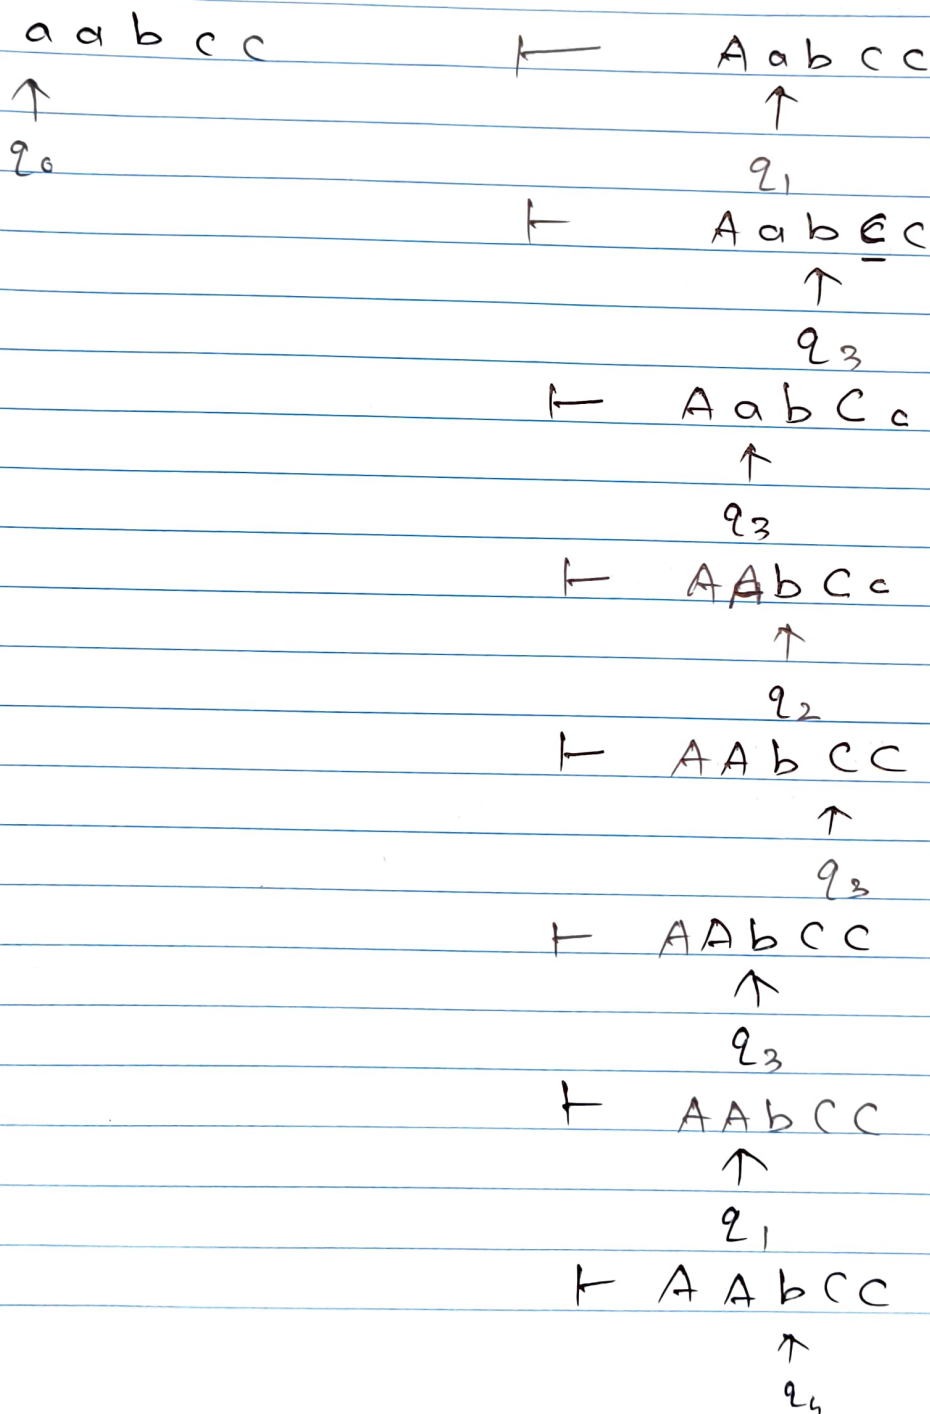 a a b c c ⊢ A a b c c
↑ ↑
q0 q1
⊢ A a b C c
↑
q3
⊢ A a b C c
↑
q3
⊢ A A b C c
↑
q2
⊢ A A b C C
↑
q3
⊢ A A b C C
↑
q3
⊢ A A b C C
↑
q1
⊢ A A b C C
↑
q4